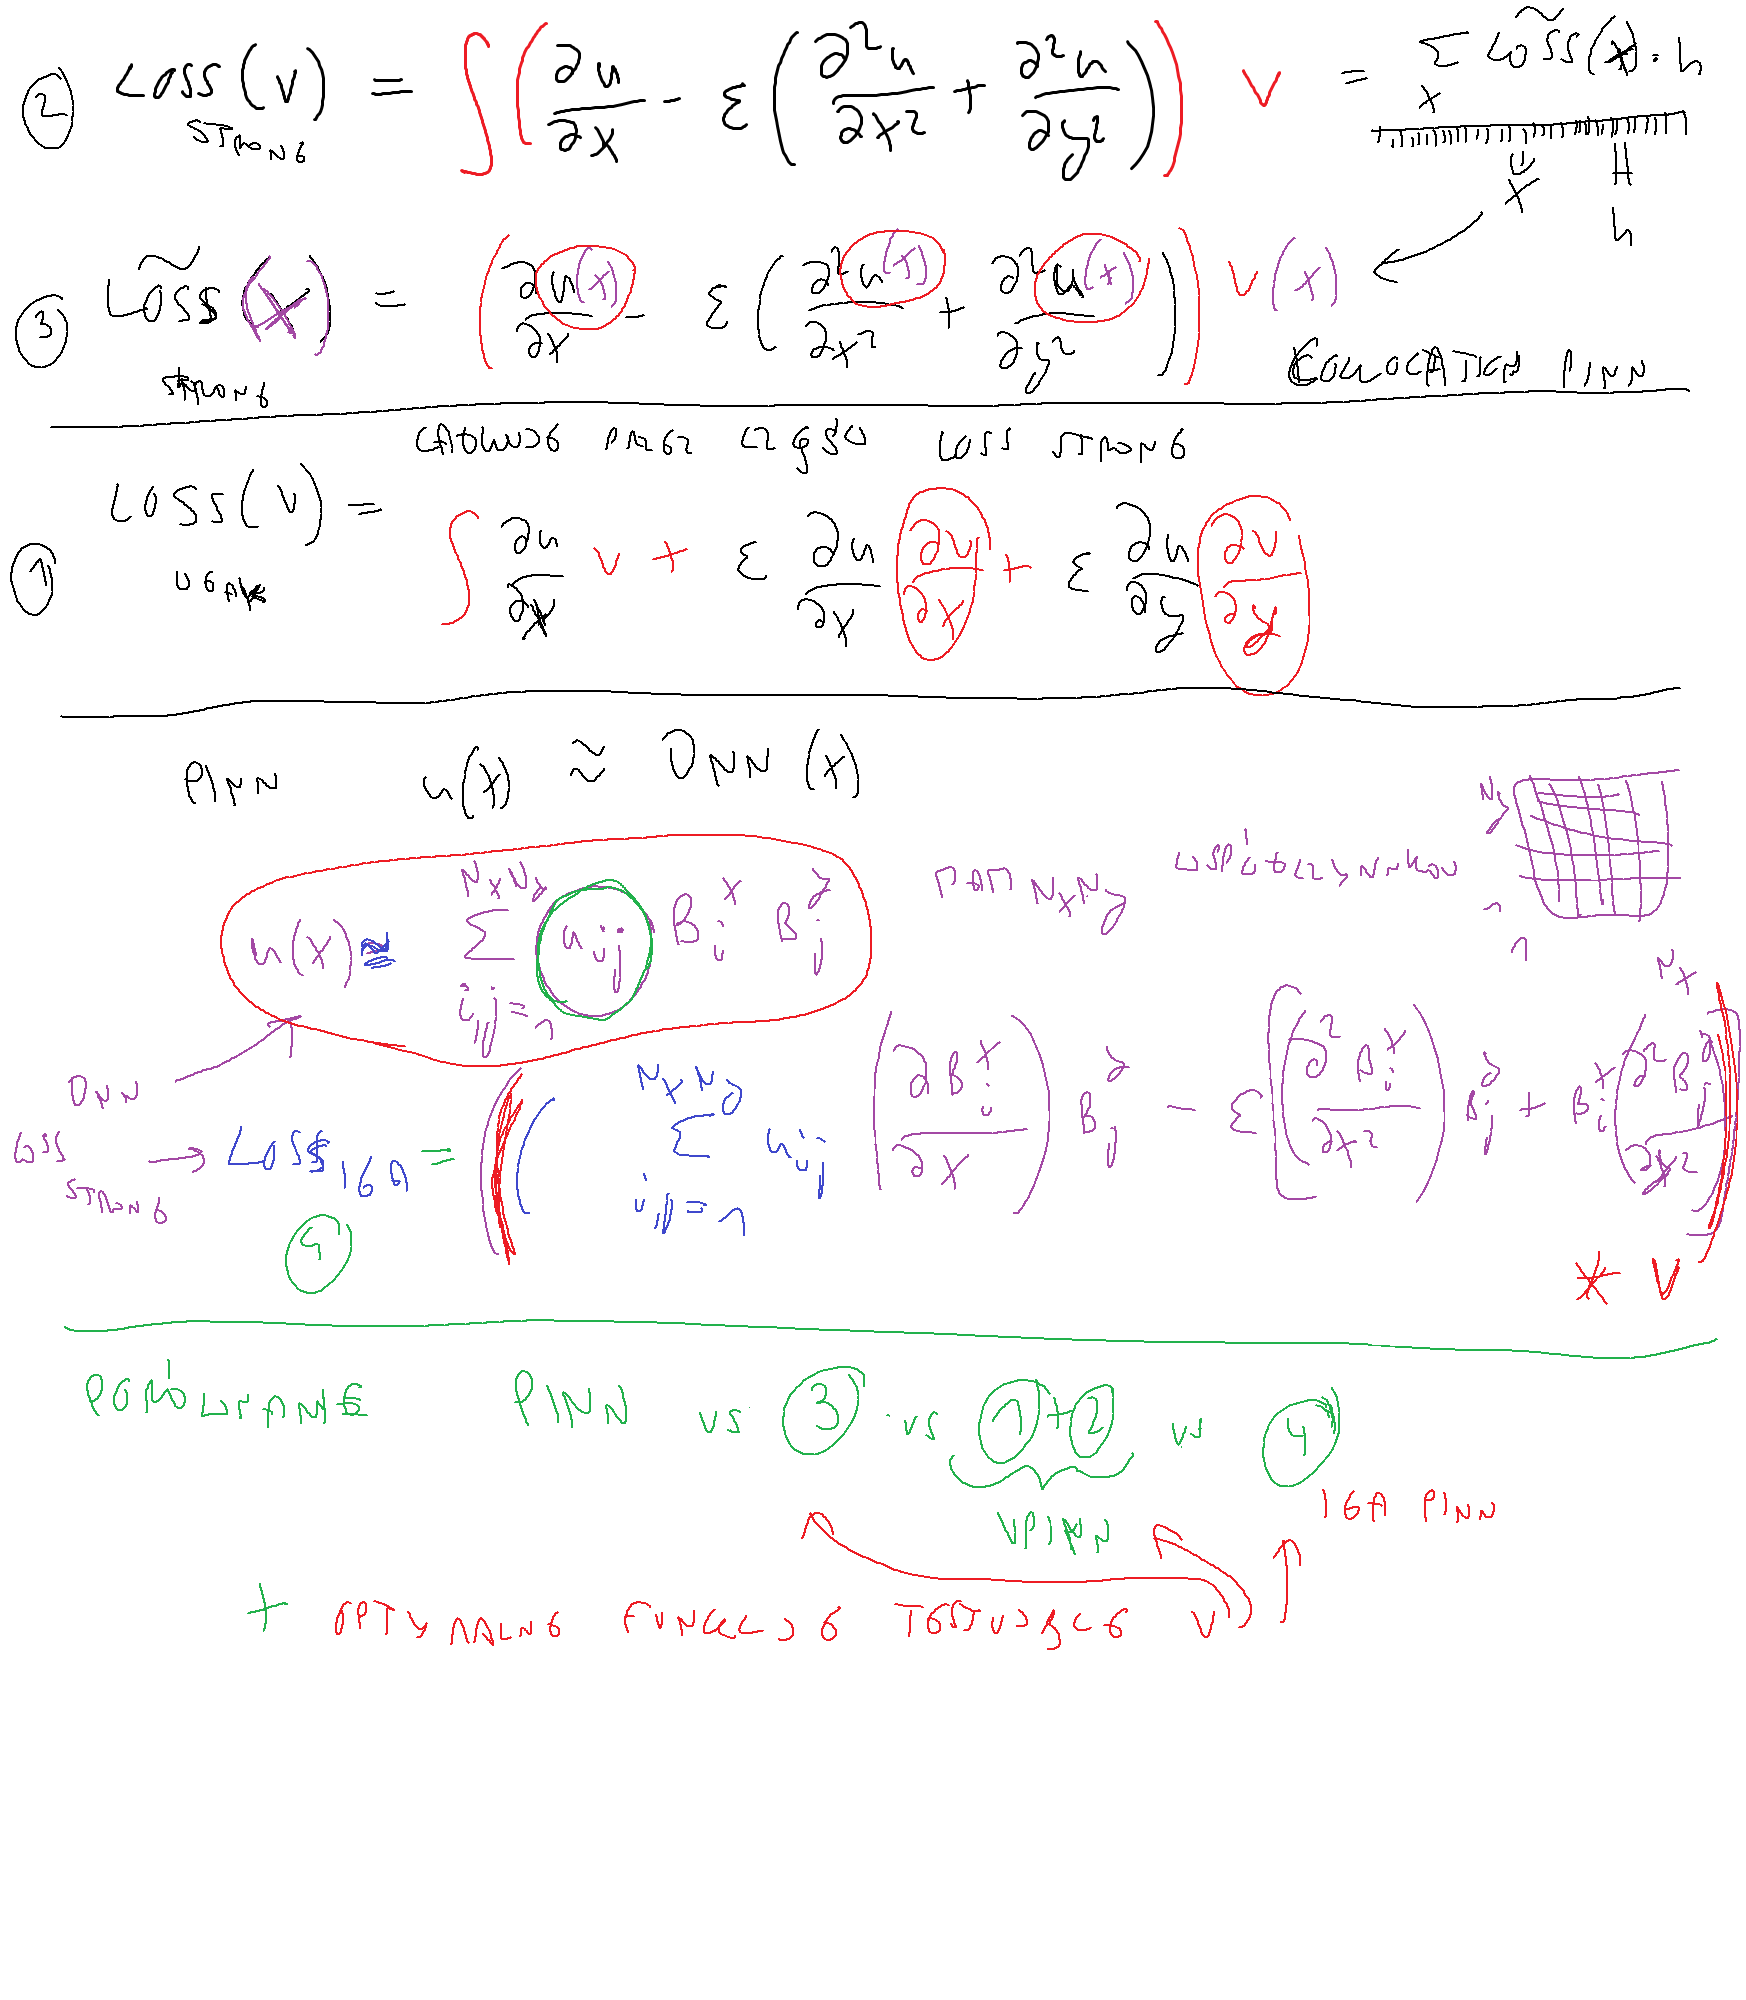 ② LOSS(V) STRONG = ∫(∂u/∂x - ε(∂²u/∂x² + ∂²u/∂y²)) V = Σ_x LOSS~(x)·h
x h
③ LOSS~(x) STRONG = (∂u(x)/∂x - ε(∂²u(x)/∂x² + ∂²u(x)/∂y²)) V(x)
COLLOCATION PINN
CAŁKUJE PRZEZ CZĘŚCI LOSS STRONG
① LOSS(V) WEAK = ∫ ∂u/∂x V + ε ∂u/∂x ∂v/∂x + ε ∂u/∂y ∂v/∂y
PINN u(x) ≈ DNN(x)
u(x) ≈ Σ_{i,j=1}^{NxNy} u_ij B_i^x B_j^y MAM NxNy WSPÓŁCZYNNIKÓW
Ny 1 1 Nx
DNN
LOSS STRONG → LOSS_IGA = ((Σ_{i,j=1}^{NxNy} u_ij (∂B_i^x/∂x) B_j^y - ε[(∂²B_i^x/∂x²) B_j^y + B_i^x (∂²B_j^y/∂y²)])
④ * V
PORÓWNANIE PINN vs ③ vs ①+② vs ④
VPINN IGA PINN
+ OPTYMALNE FUNKCJE TESTUJĄCE V